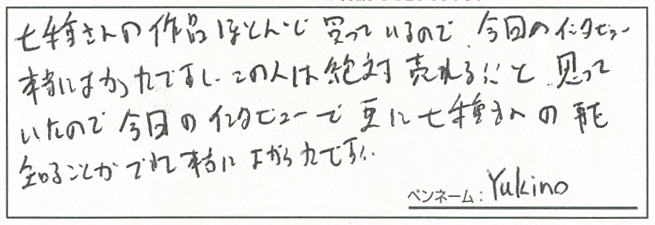 七種さんの作品ほとんど買っているので今回のインタビュー
本当によかったです!!この人は絶対売れる!!と思って
いたので今日のインタビューで更に七種さんの事を
知ることができて本当によかったです!!
ペンネーム:Yukino